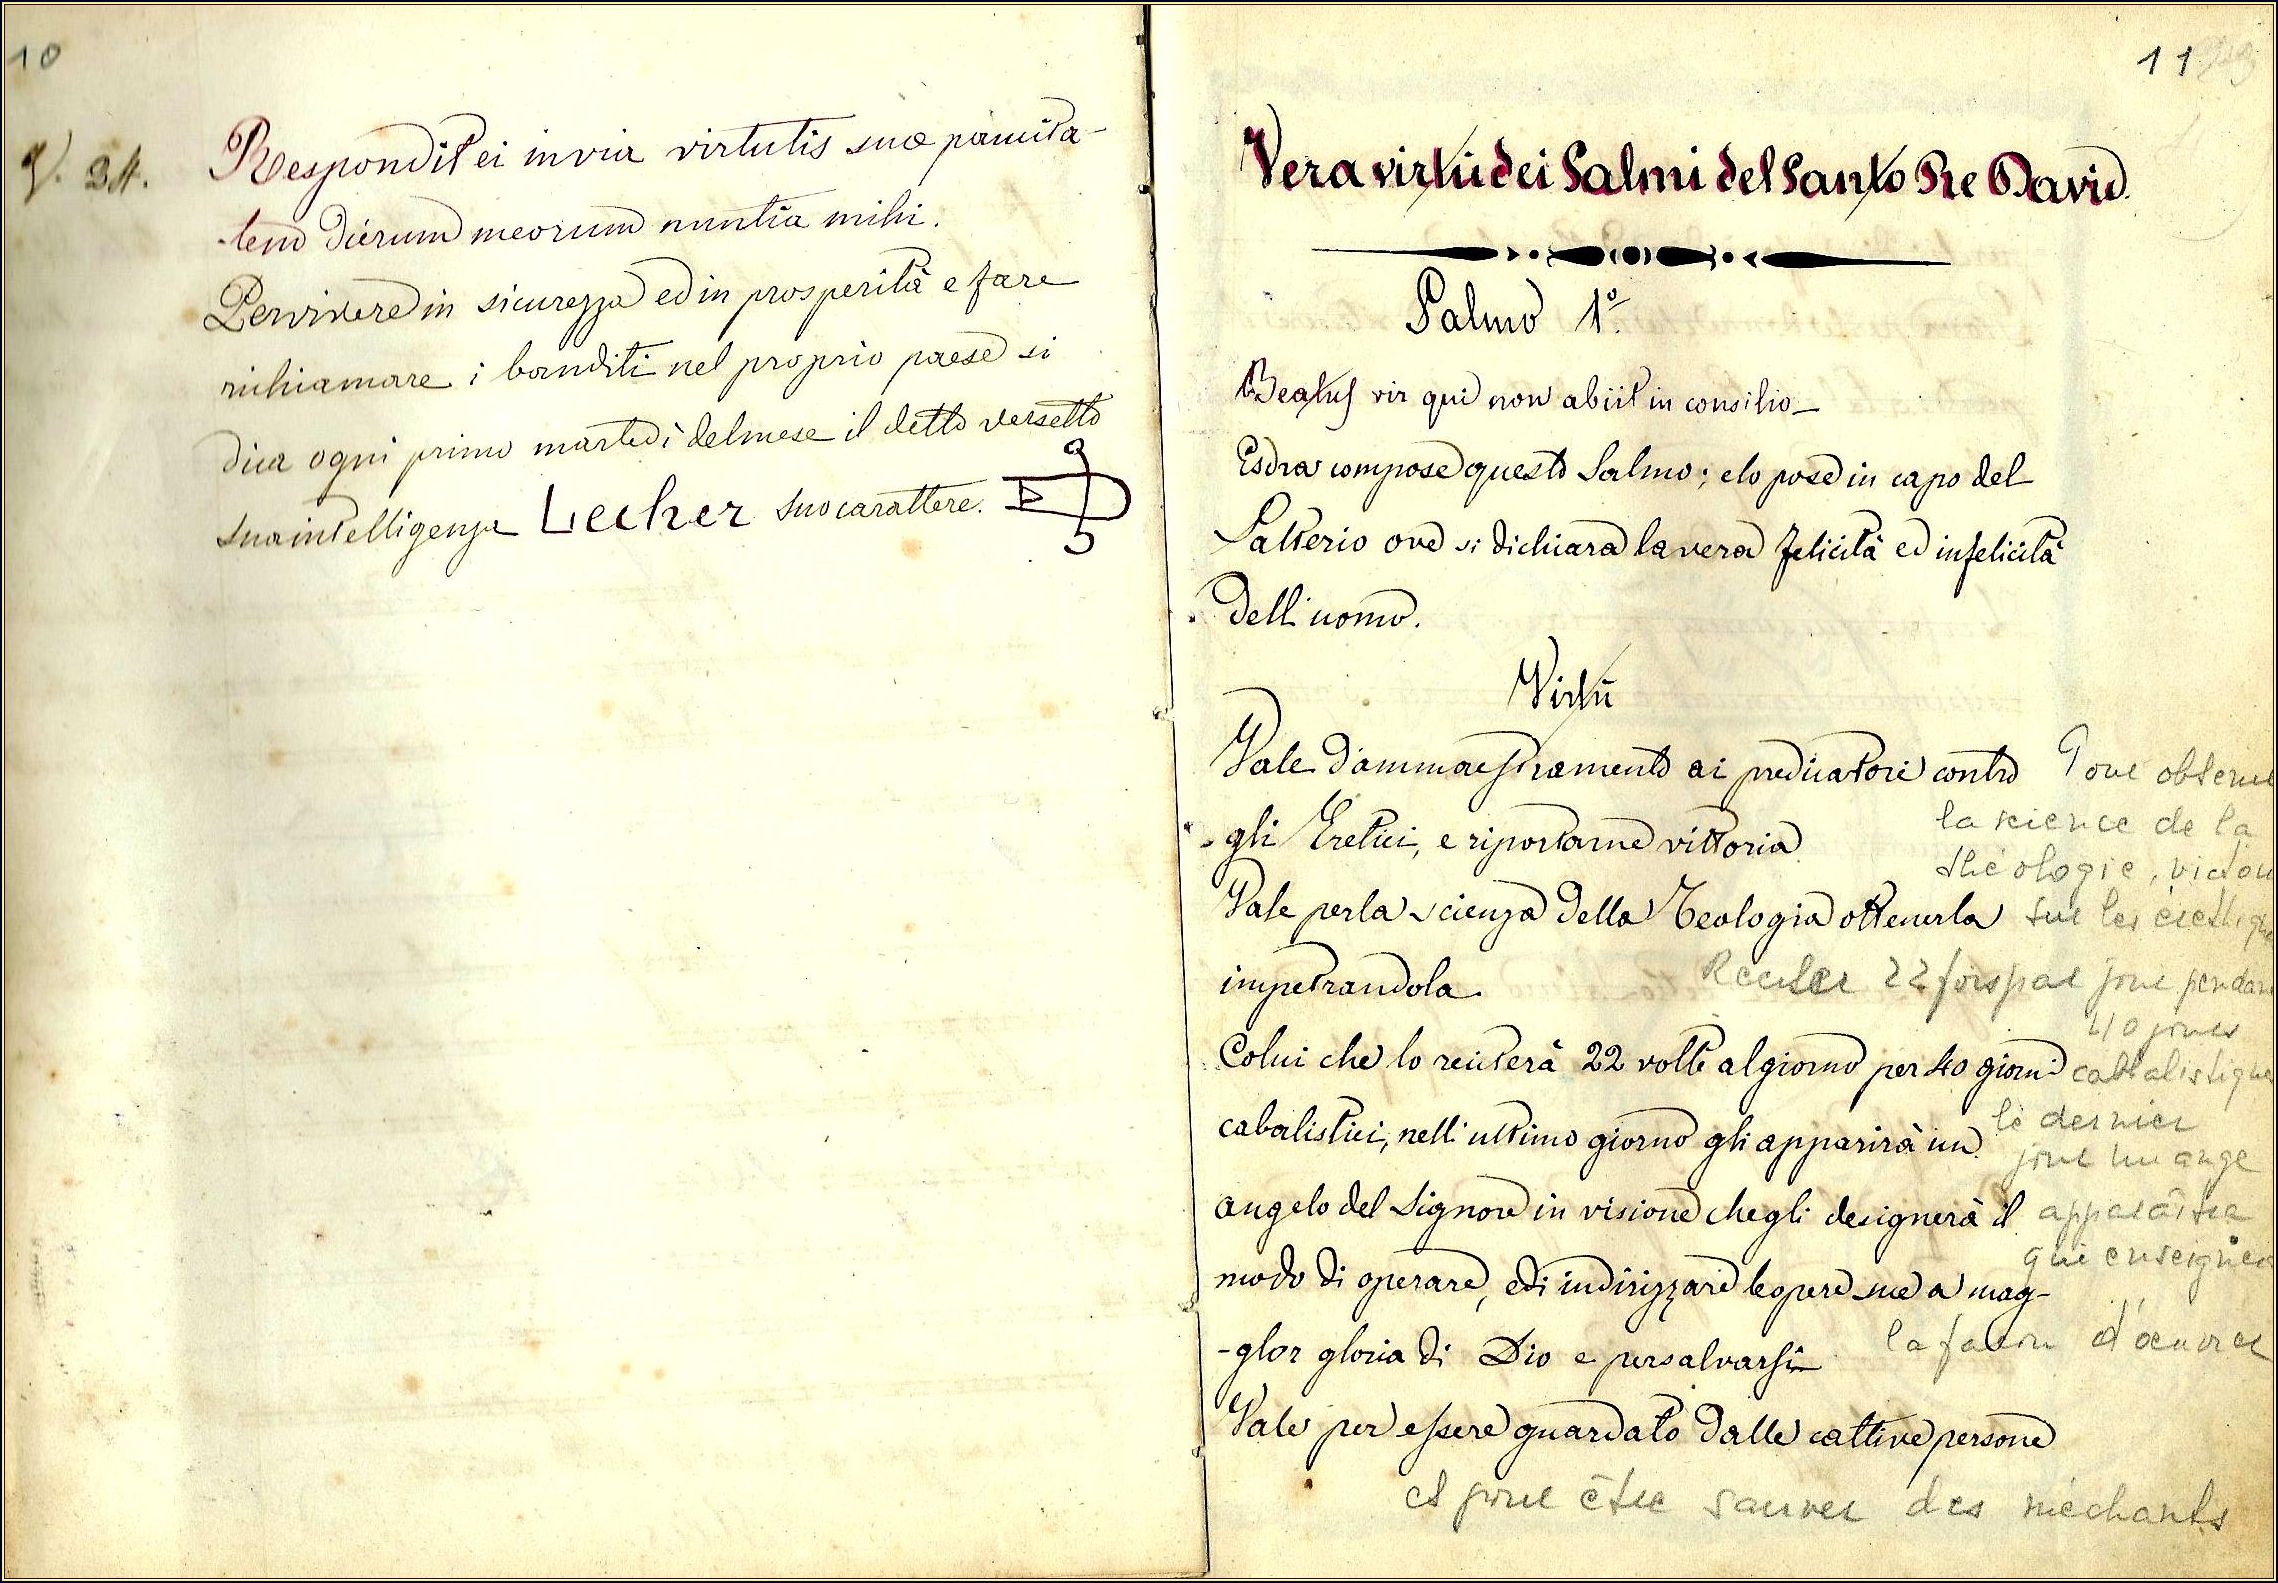 10
V. 24.
Respondit ei in via virtutis suæ paucita-
-tem dierum meorum nuntia mihi.
Per vivere in sicurezza ed in prosperità e fare
richiamare i banditi nel proprio paese si
dica ogni primo martedì del mese il detto versetto
sua intelligenza Lecher suo carattere.
11
Vera virtù dei Salmi del Santo Re David.
Salmo 1º.
Beatus vir qui non abiit in consilio_
Esdra compose questo Salmo; e lo pose in capo del
Salterio ove si dichiara la vera felicità ed infelicità
dell'uomo.
Virtù
Vale d'ammaestramento ai predicatori contro
gli Eretici, e riportarne vittoria
Vale per la scienza della Teologia ottenerla
impetrandola.
Colui che lo reciterà 22 volte al giorno per 40 giorni
cabalistici, nell'ultimo giorno gli apparirà un
angelo del Signore in visione che gli designerà il
modo di operare, e di indirizzare le opere sue a mag-
-gior gloria di Dio e per salvarsi
Vale per essere guardato dalle cattive persone
Pour obtenir
la science de la
théologie, victoir
sur les érétique
Reciter 22 fois par jour pendant
40 jours
cabbalistiques
le dernier
jour un ange
apparaîtra
qui enseignera
la façon d'œuvrer
et pour être sauver des méchants